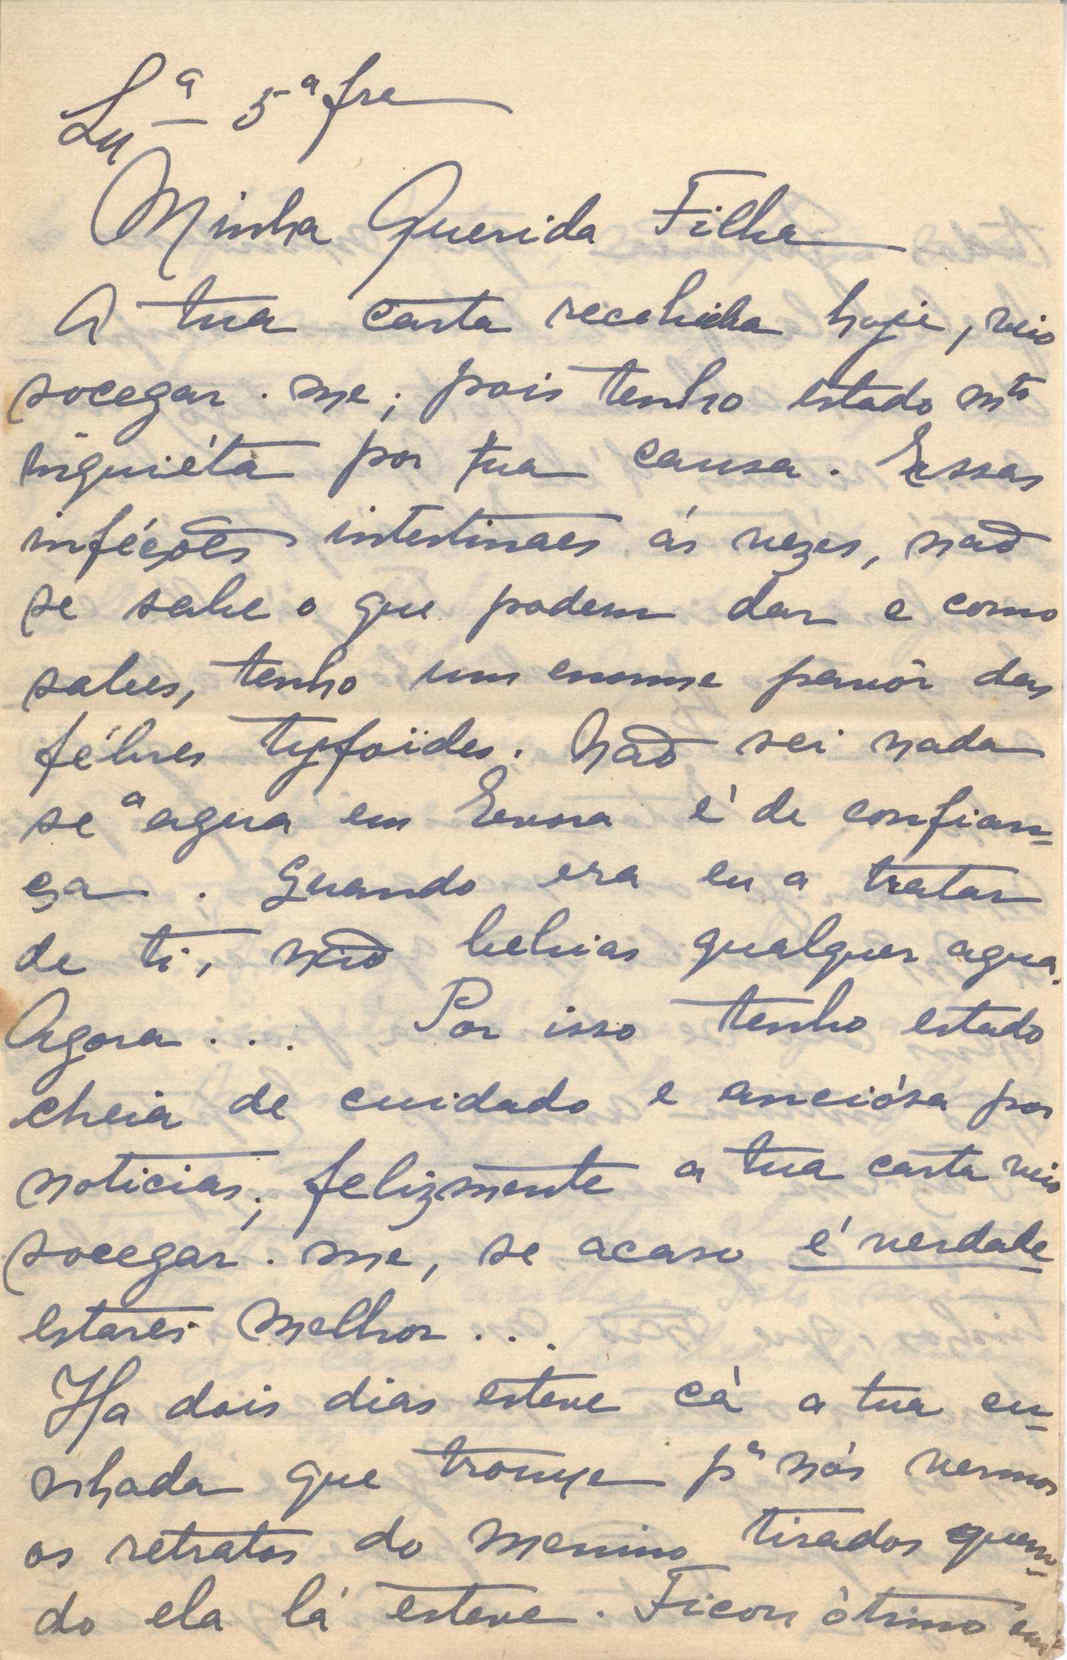 Lxª 5ª fra
Minha Querida Filha
A tua carta recebida hoje, veio
socegar-me; pois tenho estado mto
inquiéta por tua causa. Essas
inféções intestinaes ás vezes, não
se sabe o que podem dar e como
sabes, tenho um enorme pavôr das
fébres tyfoïdes. Não sei nada
se a agua em Evora é de confian-
ça. Quando era eu a tratar
de ti, não bebias qualquer agua.
Agora... Por isso tenho estado
cheia de cuidado e anciósa por
noticias; felizmente a tua carta veio
socegar-me, se acaso é verdade
estares melhor...
Ha dois dias esteve cá a tua cu-
nhada que trouxe pª nós vermos
os retratos do menino tirados quan-
do ela lá esteve. Ficou òtimo